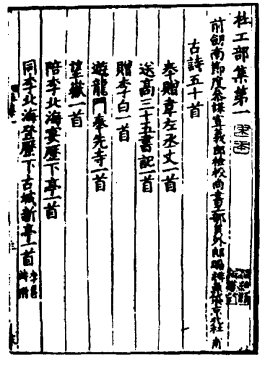 杜工部集第一
前劍南節度參謀宣義郎檢校尚書工部員外郎賜緋魚袋京兆杜甫
古詩五十首
奉贈韋左丞丈一首
送高三十五書記一首
贈李白一首
遊龍門奉先寺一首
望嶽一首
陪李北海宴歷下亭一首
同李北海登歷下古城新亭一首